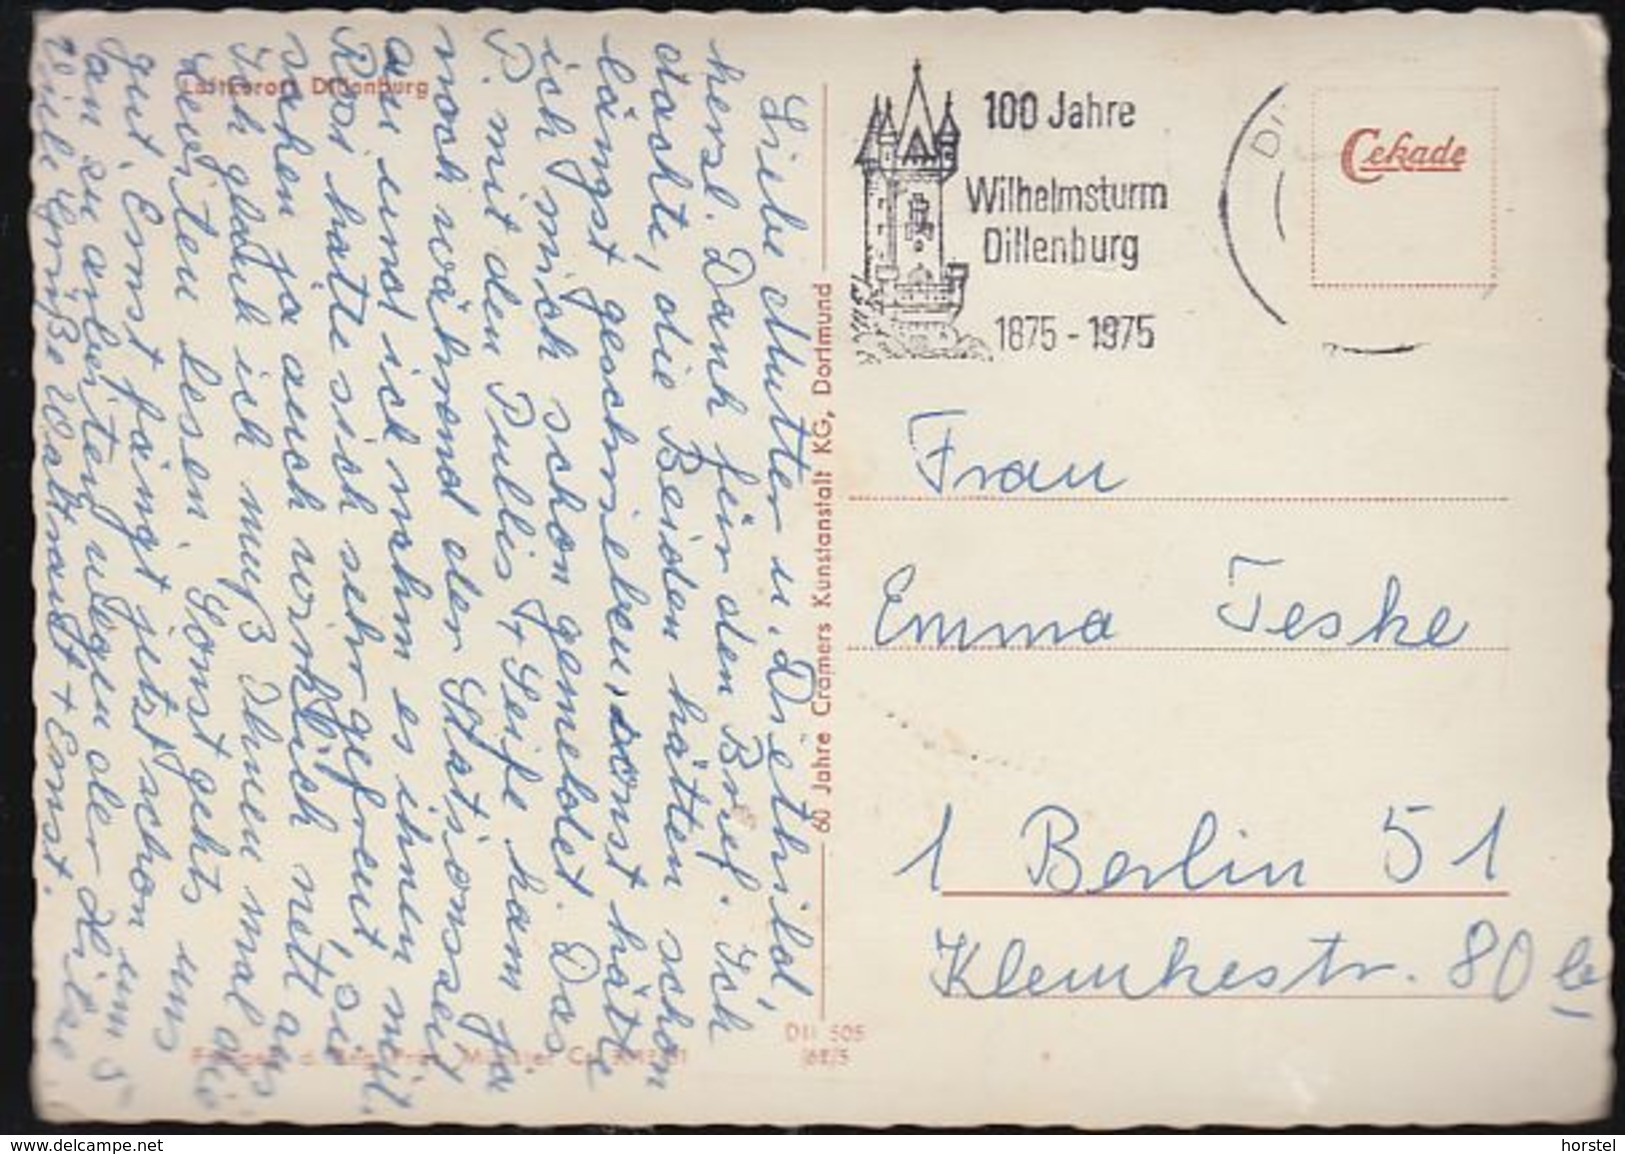 Luftkurort Dillenburg
Liebe Mutter u. Diethild,
herzl. Dank für den Brief. Ich
dachte, die Beiden hätten schon
längst geschrieben, sonst hätte
ich mich schon gemeldet. Das
P. mit den Pullis + Seife kam ja
noch während der Stationszeit
an und ich nahm es ihnen mit.
Rosi hatte sich sehr gefreut, sie
sahen ja auch wirklich nett aus.
Ich glaub ich muß Ihnen mal die
Leviten lesen. Sonst gehts uns
gut, Ernst fängt jetzt schon um 5
an zu arbeiten wegen der Hitze.
Viele Grüße Waltraut + Ernst.
60 Jahre Cramers Kunstanstalt KG, Dortmund
Dil 505
100 Jahre
Wilhelmsturm
Dillenburg
1875 - 1975
Cekade
Frau
Emma Teske
1 Berlin 51
Klemkestr. 80
www.delcampe.net
horstel